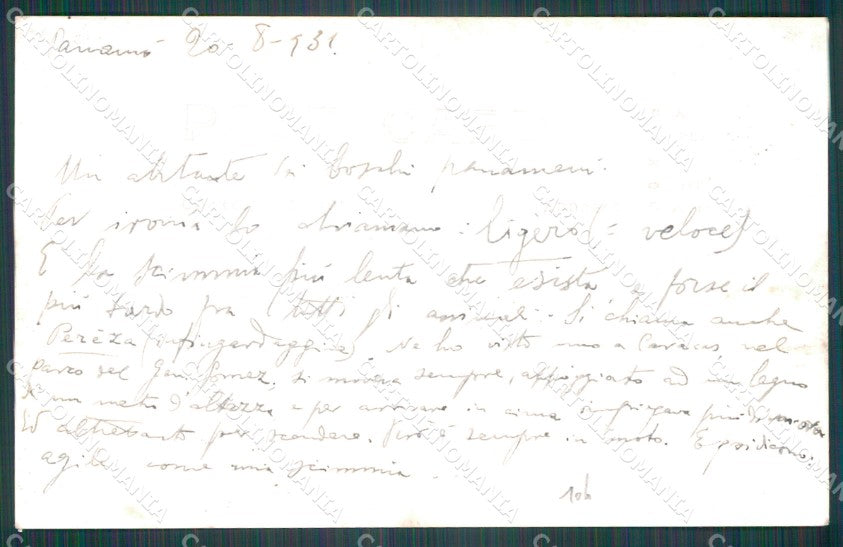 Panamá 20 8-931.
Un abitante dei boschi panameni.
Per ironia lo chiamano: ligero (= veloce)
È la scimmia più lenta che esista e forse il
più tardo fra tutti gli animali. Si chiama anche
Pereza (infingardaggine). Ne ho visto uno a Caracas, nel
parco del Gomez. Si moveva sempre, appoggiato ad un legno
di un metro d'altezza e per arrivare in cima più di
Ed altrettanto per scendere. Però è sempre in moto. E poi dicono:
agile come una scimmia.
10b
CARTOLINOMANIA